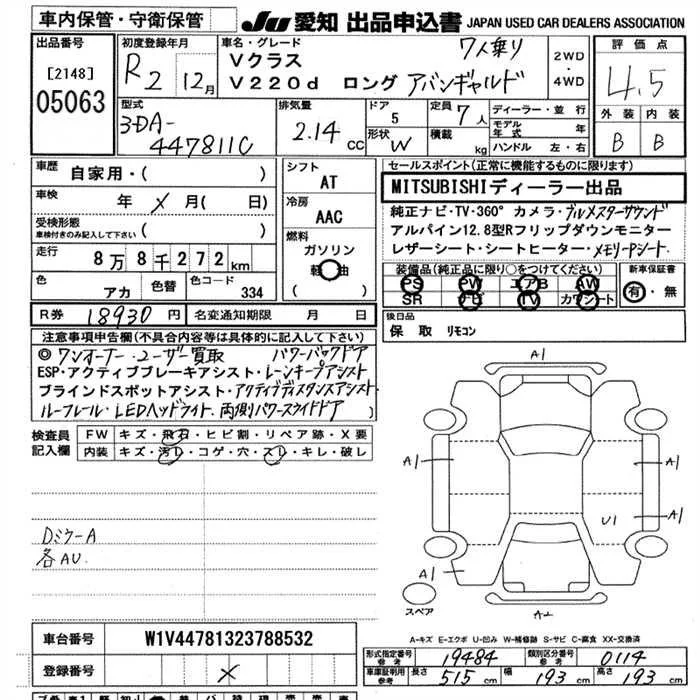 車内保管・守衛保管 JU 愛知 出品申込書 JAPAN USED CAR DEALERS ASSOCIATION
出品番号 初度登録年月 車名・グレード 7人乗り 評価点
[2148] R2 12月 Vクラス 2WD
05063 V220d ロング アバンギャルド 4WD 4.5
型式 排気量 ドア 定員 ディーラー・並行 外装 内装
3DA- 5 7人 モデル年式 年
447811C 2.14CC 形状 W 積載 kg ハンドル 左・右 B B
車歴 自家用・( ) シフト AT セールスポイント(正常に機能するものに限ります)
車検 年 メ 月( 日) 冷房 AAC MITSUBISHIディーラー出品
受検形態 車検付きのみ記入して下さい ( ) 燃料 純正ナビ・TV・360° カメラ・ブルメスターサウンド
走行 8万8千272km ガソリン アルパイン12.8型Rフリップダウンモニター
軽油 レザーシート・シートヒーター・メモリーPシート
色 アカ 色替 色コード 334 ( ) 装備品(純正品に限り○をつけてください) 新車保証書
PS PW エアB AW 有・無
SR ナビ TV カワシート
R券 18930円 名変通知期限 月 日 後日品
保 取 リモコン
注意事項申告欄(不具合内容等は具体的に記入して下さい)
◎ワンオーナー・ユーザー買取 パワーバックドア
ESP・アクティブブレーキアシスト・レーンキープアシスト
ブラインドスポットアシスト・アクティブディスタンスアシスト・
ルーフレール・LEDヘッドライト・両側パワースライドドア )
検査員記入欄 FW キズ・飛石・ヒビ割・リペア跡・X要
内装 キズ・汚レ・コゲ・穴・スレ・キレ・破レ
A1
A1 A1
U1 A1
A1
A2
スペア
Dミラ-A
各AU
A-キズ E-エクボ U-凹み W-補修跡 S-サビ C-腐食 XX-交換済
車台番号 W1V44781323788532
登録番号 メ
形式指定番号 参考 19484 類別区分番号 参考 0114
車庫証明用 参考 長さ 515cm 幅 193cm 高さ 193cm